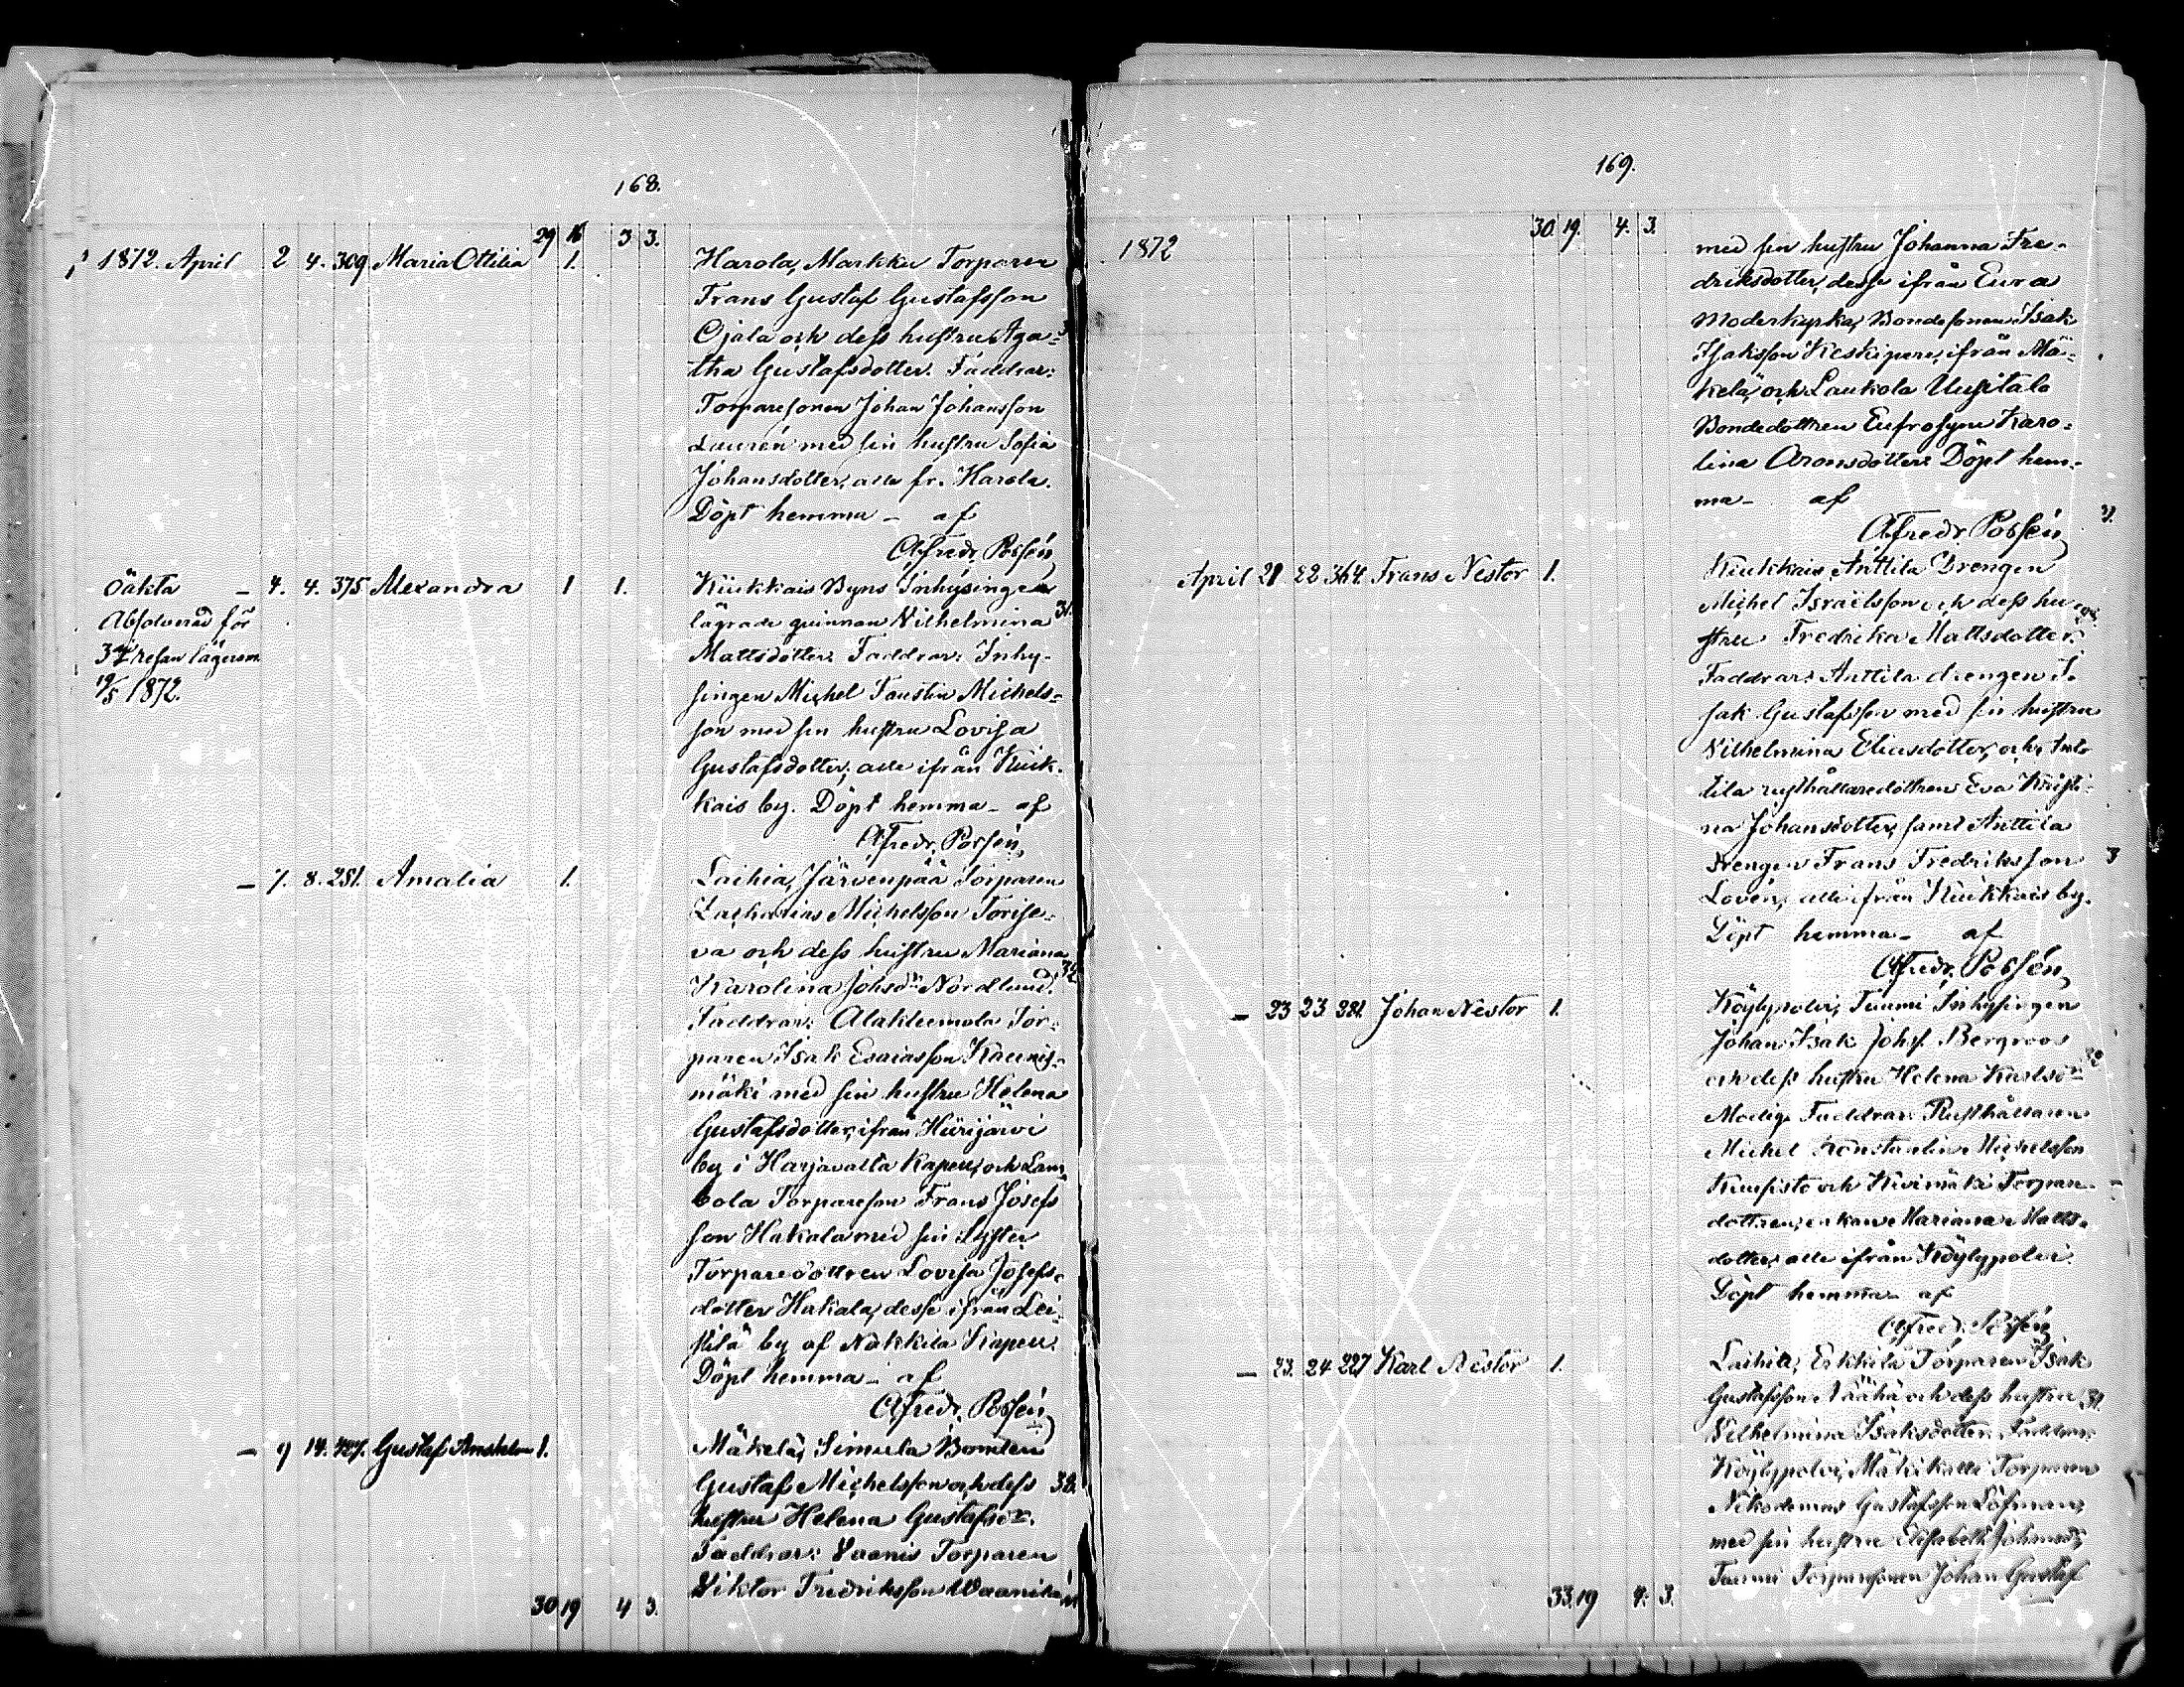 168.
29 16 3 3.
1872. April 2 4. 309 Maria Ottilia 1. Harola, Markku Torparen
Frans Gustaf Gustafsson
Ojala och dess hustru Aga-
tha Gustafsdotter. Faddrar:
Torparesonen Johan Johansson
Laurén med sin hustru Sofia
Johansdotter, alla fr. Harola.
Döpt hemma - af
Alfredr. Possén
Oäkta - 4. 4. 375. Alexandra 1 1. Kiukkais Byns Inhysingen
Absolverad för lägrade quinnan Wilhelmina 31.
3dje resan lägersm. Mattsdotter. Faddrar: Inhy-
19/5 1872. singen Michel Faustin Michels-
son med sin hustru Lovisa
Gustafsdotter, alla ifrån Kiuk-
kais by. Döpt hemma - af
Alfredr. Possén
- 7. 8. 281. Amalia 1. Laihia, Järvenpää Torparen
Zacharias Michelsson Torise-
va och dess hustru Mariana
Karolina Johsdr Nordlund.
Faddrar: Alakleemola Tor-
paren Isak Esaiasson Kaunis-
mäki med sin hustru Helena
Gustafsdotter, ifrån Hiirijärvi
by i Harjavalta Kapell, och Lam-
bola Torpareson Frans Josefs
son Hakala med sin Syster
Torparedottren Lovisa Josefs-
dotter Hakala, desse ifrån Lei-
stilä by af Nakkila Kapell.
Döpt hemma - af
Alfredr. Possén
- 9 14. 427. Gustaf Anshelm 1. Mäkelä, Simula Bonden
Gustaf Michelsson och dess 38.
hustru Helena Gustafsdr.
Faddrar: Vaanis Torparen
Viktor Fredriksson Waanila
30 19 4 3.
169.
30. 19. 4. 3.
1872 med sin hustru Johanna Fre-
driksdotter, desse ifrån Eura
Moderkyrka, Bondesonen Isak
Isaksson Keskipere, ifrån Mä-
kelä, och Laukola Uusitalo
Bondedottren Eufrosyne Karo-
lina Aronsdotter. Döpt hem-
ma - af
Alfredr. Possén
April 21 22 364. Frans Nestor 1. Kiukkais, Anttila Drengen
Michel Israelsson och dess hu
stru Fredrika Mattsdotter.
Faddrar: Anttila drengen I-
sak Gustafsson med sin hustru
Wilhelmina Eliasdotter, och Ant-
tila rusthållaredottren Eva Kristi-
na Johansdotter, samt Anttila
drengen Frans Fredriksson
Lovén, alla ifrån Kiukkais by.
Döpt hemma - af
Alfredr. Possén
- 23 23 221. Johan Nestor 1. Köylypolvi, Tuomi Inhysingen
Johan Isak Johss. Bergroos
och dess hustru Helena Karlsdr
Modig. Faddrar: Rusthållaren
Michel Konstantin Michelsson
Kuusisto och Kivimäki Torpare-
dottren, enkan Mariana Matts-
dotter, alla ifrån Köylypolvi.
Döpt hemma - af
Alfredr. Possén
- 23. 24 227 Karl Nestor 1. Laihia, Erkkilä Torparen Isak
Gustafsson Näähä och dess hustru
Wilhelmina Isaksdotter. Faddrar:
Köylypolvi, Mäkikalli Torparen
Nikodemus Gustafsson Löfman,
med sin hustru Elisabeth Johansdr,
Tuomi Torparesonen Johan Gustaf
33. 19 4. 3.